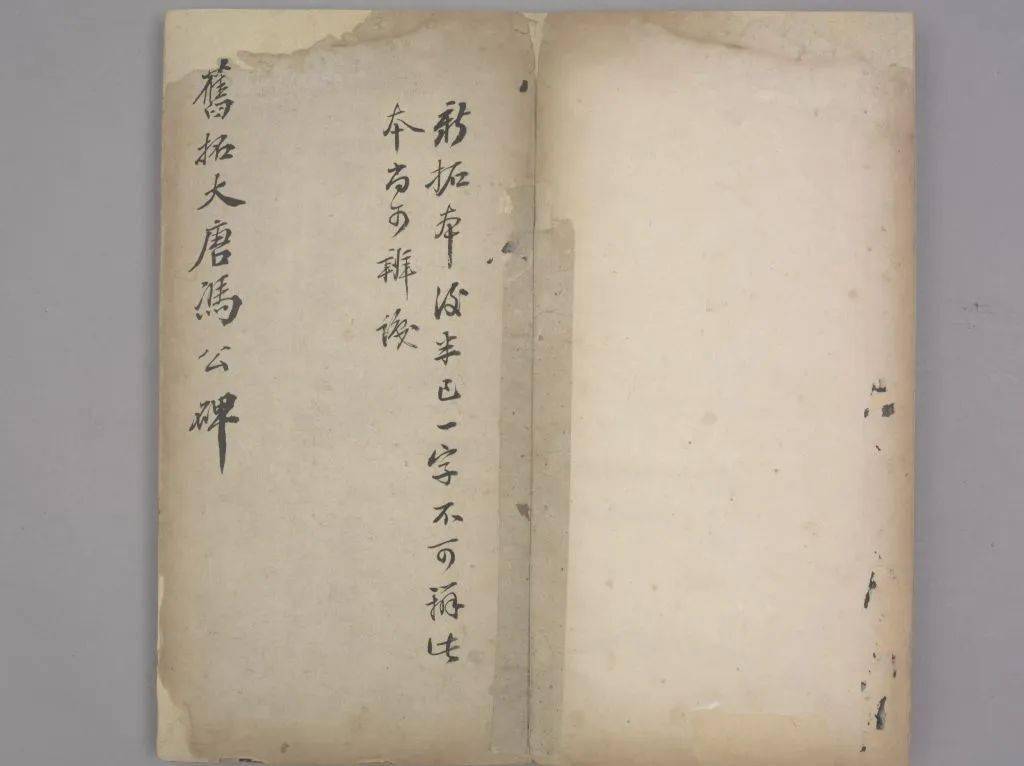 新拓本後半已一字不可辨此
本尚可辨識
舊拓大唐馮公碑